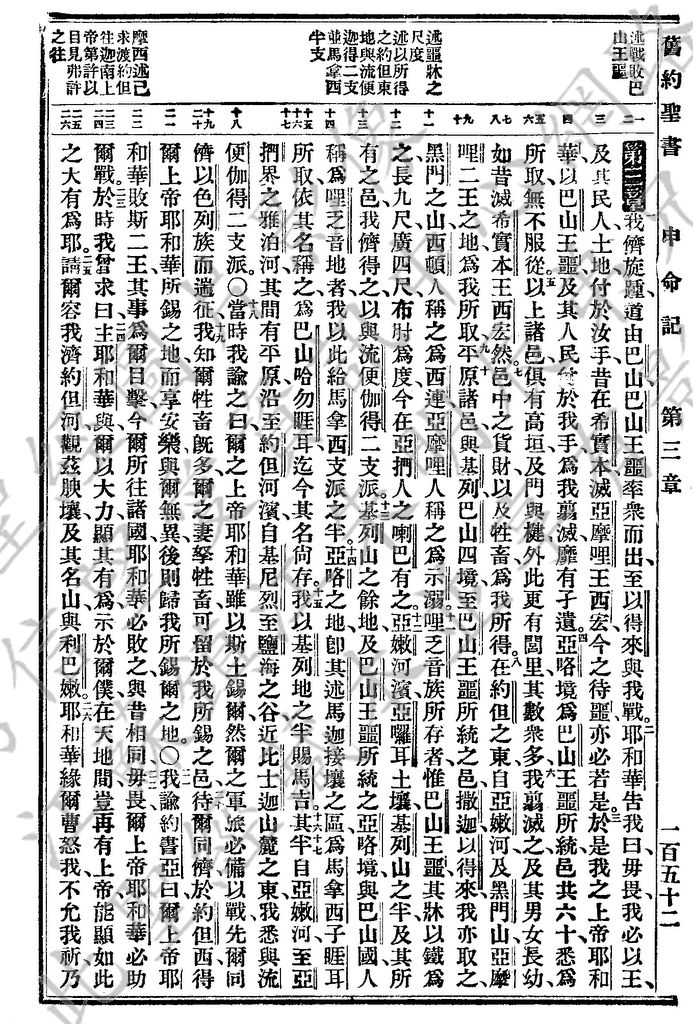 舊約聖書 申命記 第三章 一百五十二
述戰敗巴
山王噩
述噩牀之
尺度
述以所得
之約但東
地與流便
迦得二支
並馬拿西
半支
摩西述己
求渡約但
往迦南上
帝第許以
目見弗許
之往
第三章我儕旋踵道由巴山巴山王噩率衆而出至以得來與我戰耶和華告我曰毋畏我必以王
及其民人土地付於汝手昔在希實本滅亞摩哩王西宏今之待噩亦必若是於是我之上帝耶和
華以巴山王噩及其人民付於我手爲我翦滅靡有孑遺亞略境爲巴山王噩所統邑共六十悉爲
所取無不服從以上諸邑俱有高垣及門與楗外此更有閭里其數衆多我翦滅之及其男女長幼
如昔滅希實本王西宏然邑中之貨財以及牲畜爲我所得在約但之東自亞嫩河及黑門山亞摩
哩二王之地爲我所取平原諸邑與基列巴山四境至巴山王噩所統之邑撒迦以得來我亦取之
黑門之山西頓人稱之爲西連亞摩哩人稱之爲示溺哩乏音族所存者惟巴山王噩其牀以鐵爲
之長九尺廣四尺布肘爲度今在亞捫人之喇巴有之亞嫩河濱亞囉耳土壤基列山之半及其所
有之邑我儕得之以與流便伽得二支派基列山之餘地及巴山王噩所統之亞略境與巴山國人
稱爲哩乏音地者我以此給馬拿西支派之半亞略之地卽其述馬迦接壤之區爲馬拿西子睚耳
所取依其名稱之爲巴山哈勿睚耳迄今其名尙存我以基列地之半賜馬吉其半自亞嫩河至亞
捫界之雅泊河其間有平原沿至約但河濱自基尼烈至鹽海之谷近比士迦山麓之東我悉與流
便伽得二支派〇當時我諭之曰爾之上帝耶和華雖以斯土錫爾然爾之軍旅必備以戰先爾同
儕以色列族而遄征我知爾牲畜旣多爾之妻孥牲畜可留於我所錫之邑待爾同儕於約但西得
爾上帝耶和華所錫之地而享安樂與爾無異後則歸我所錫爾之地〇我諭約書亞曰爾上帝耶
和華敗斯二王其事爲爾目擊今爾所往諸國耶和華必敗之與昔相同毋畏爾上帝耶和華必助
爾戰於時我曾求曰主耶和華與爾以大力顯其有爲示於爾僕在天地間豈再有上帝能顯如此
之大有爲耶請爾容我濟約但河觀茲腴壤及其名山與利巴嫩耶和華緣爾曹怒我不允我祈乃